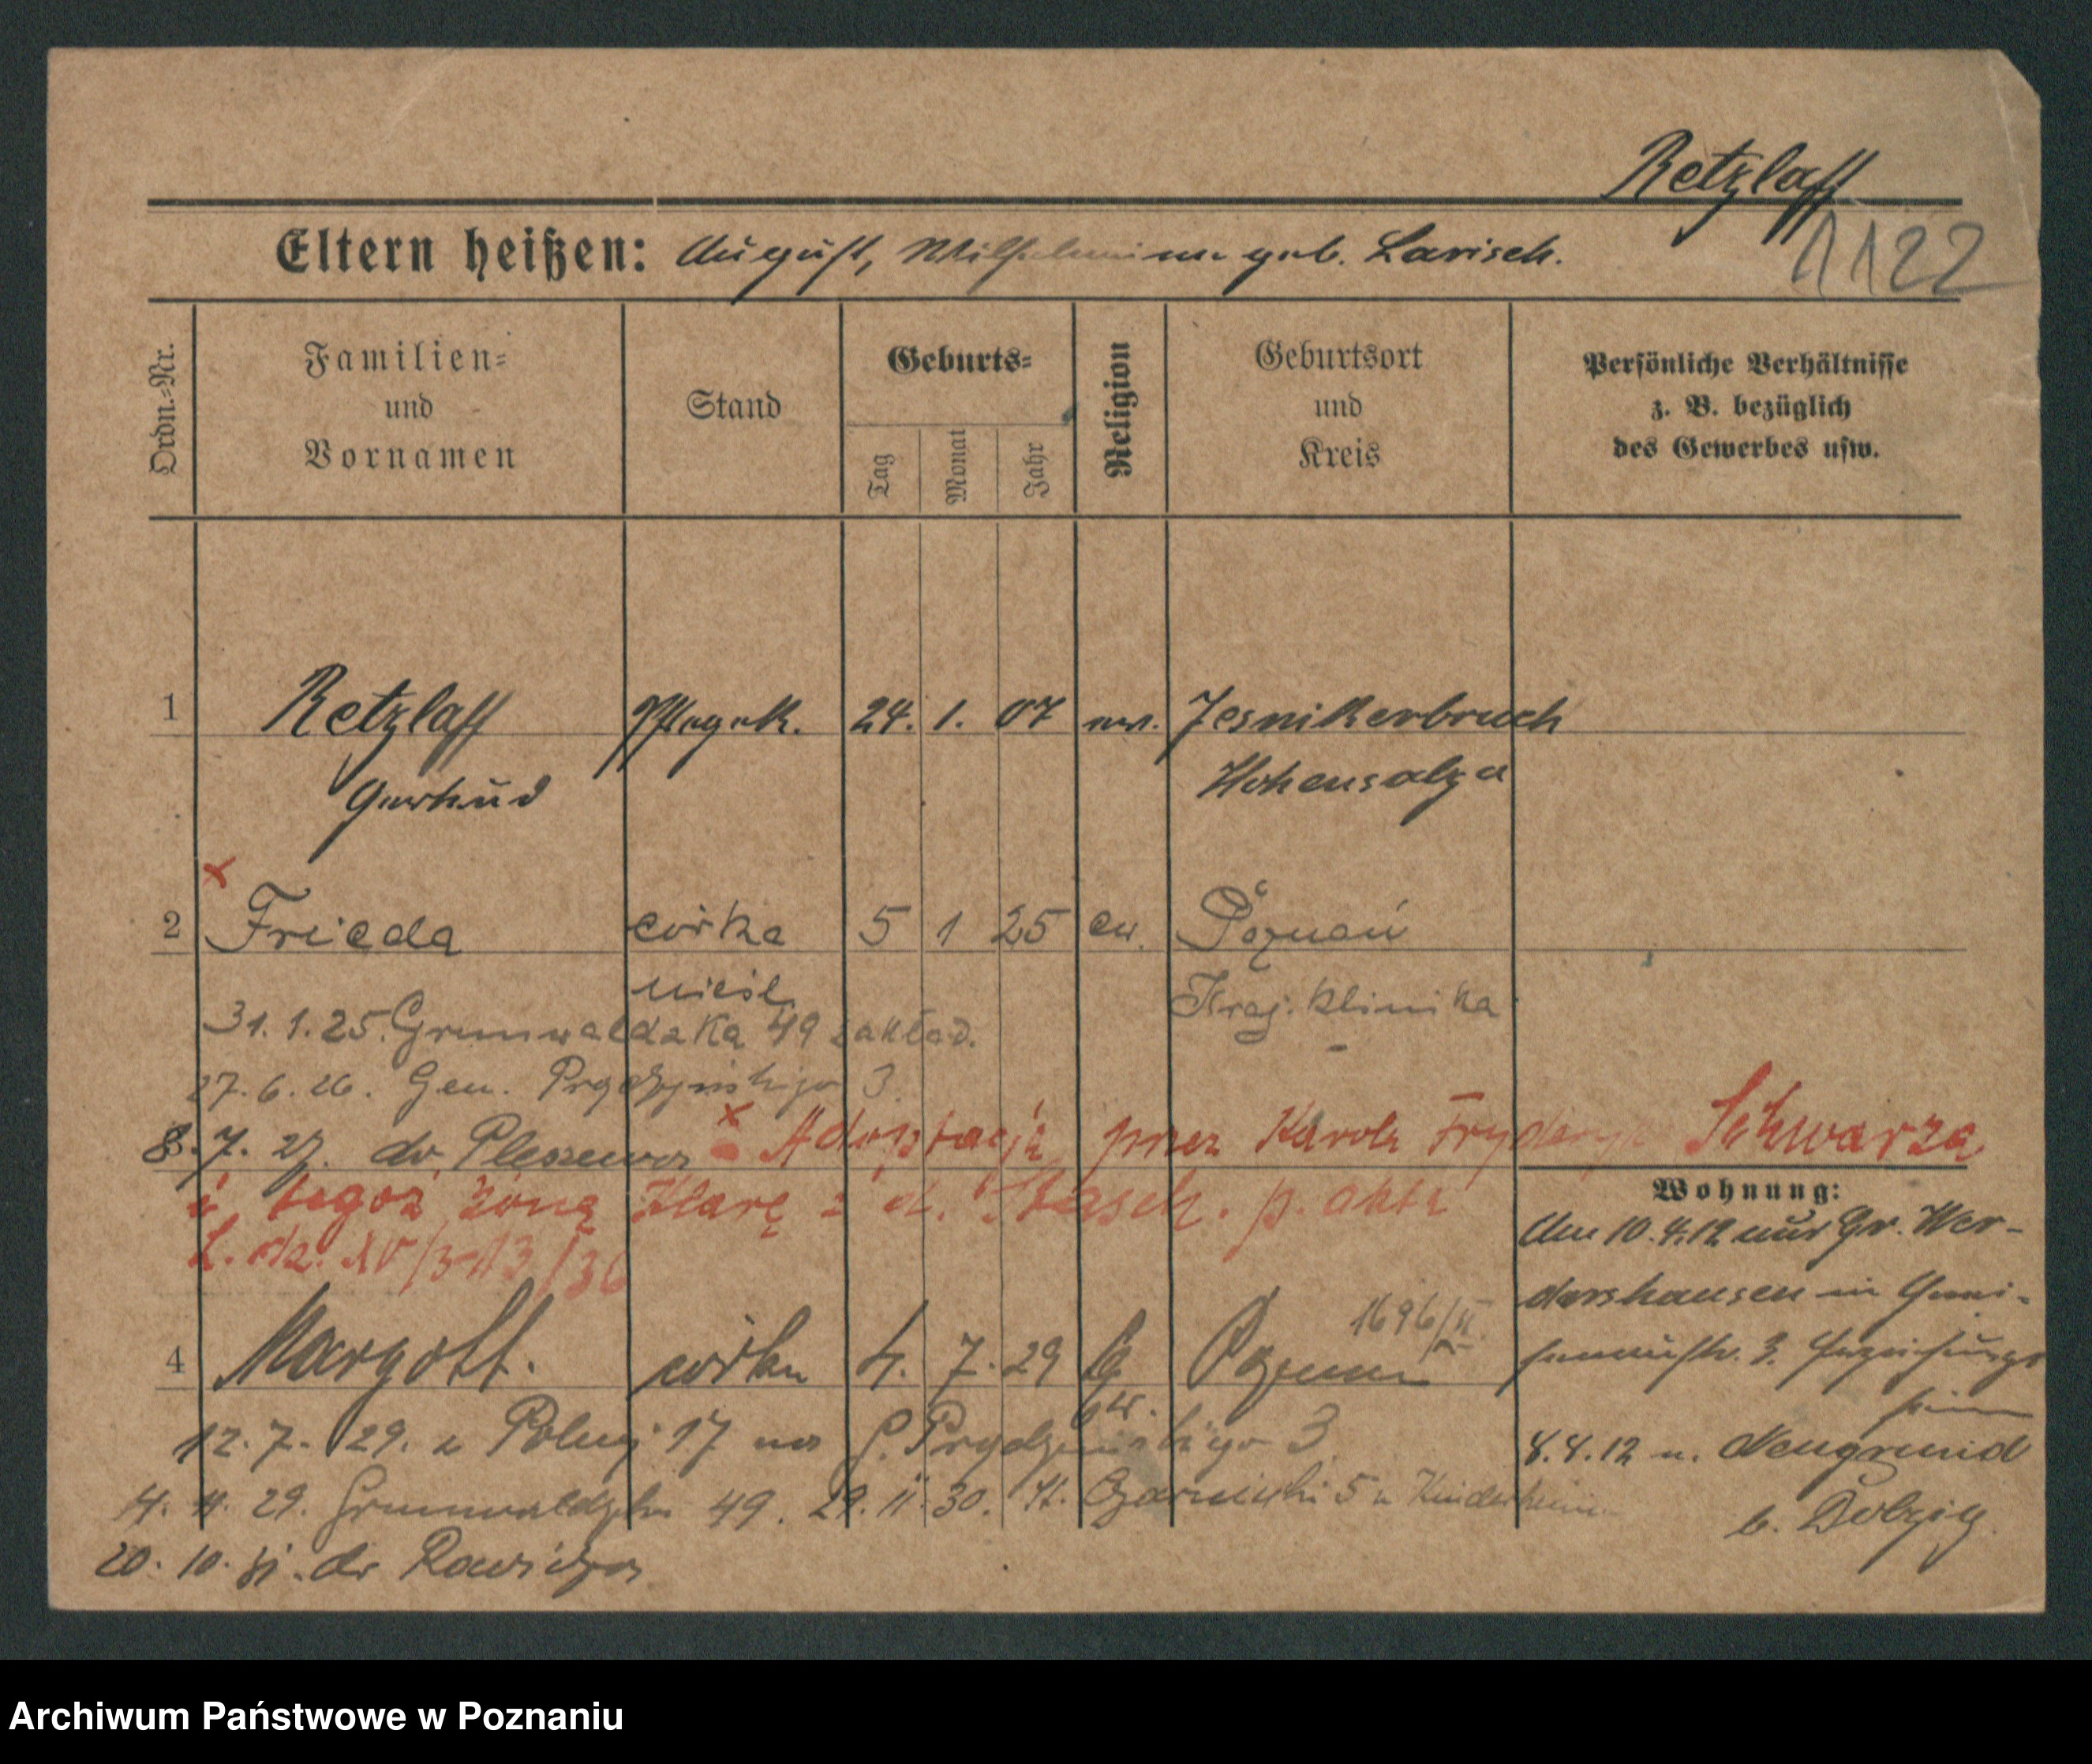 Retzlaff
1122
Eltern heißen: August, Wilhelmine geb. Larisch.
Ordn.=Nr.
Familien=
und
Vornamen
Stand
Geburts=
Tag
Monat
Jahr
Religion
Geburtsort
und
Kreis
Persönliche Verhältnisse
z. B. bezüglich
des Gewerbes usw.
1 Retzlaff Pflegek. 24. 1. 07 ev. Jesnikerbruch
Gertrud Hohensalza
2 Frieda córka 5 1 25 ew. Poznań
nieśl. Kraj. Klinika
31. 1. 25. Grunwaldzka 49 zakład.
27. 6. 26. Gen. Prądzyńskiego 3.
8. 7. 27. do Pleszewa x Adoptacja przez Karola Fryderyka Schwarza
i tegoż żonę Klarę z d. Stasch. p. akta
Wohnung:
Am 10.4.12 aus Gr. Wer-
dershausen in
3.
8.8.12 n. Neugrund
b. Dolzig.
4 Margott. córka 4. 7. 29 ew. Poznań 1696/II
12. 7. 29. z Polnej 17 na G. Prądzyńskiego 3
4. 11. 29. Grunwaldzka 49. 29. 11. 30. 5 Kinderheim
20. 10. 31. do Rawicza